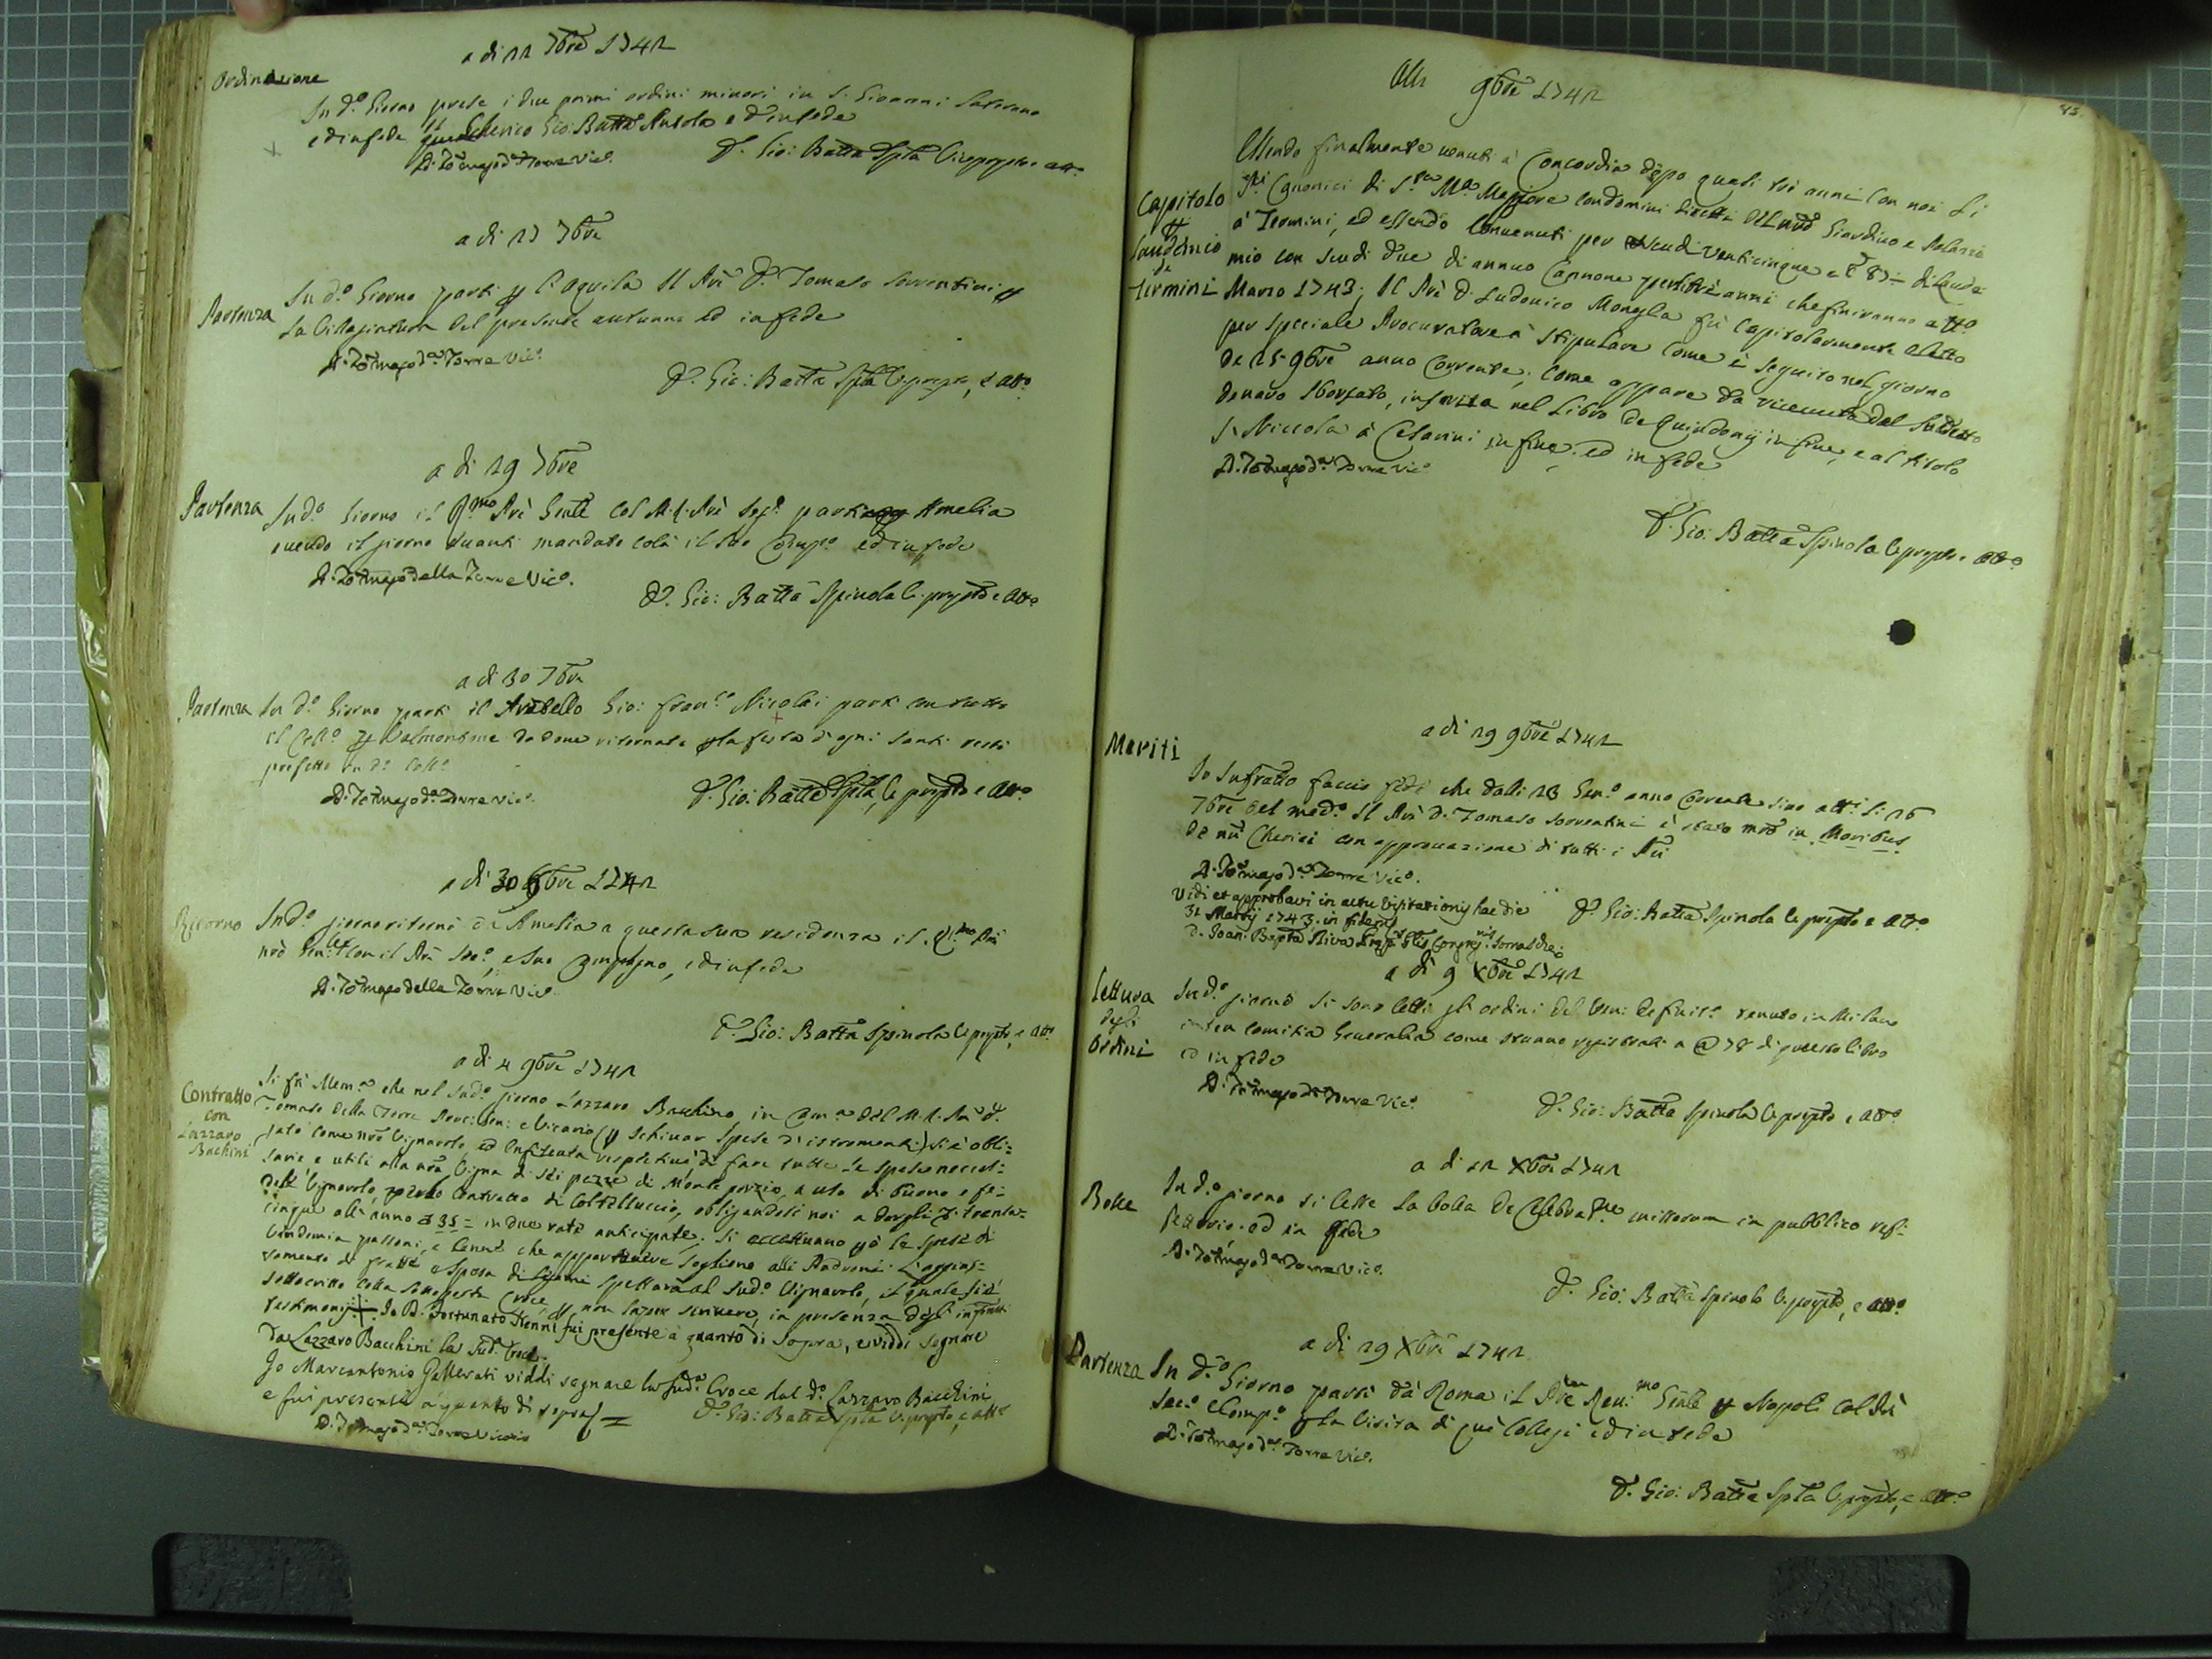 a di 22 7bre 1742
Ordinazione
In d.o Giorno prese i due primi ordini minori in S. Giovanni Laterano
ed in fede il Cherico Gio: Batta Ansola ed in fede
D. Tomaso d.a Torre Vic.o
D. Gio: Batta Spla Viceprepto e att.o
a di 23 7bre
Partenza
In d.o Giorno parti p l'Aquila Il Prē D. Tomaso Sorrentini p
la Villegiatura del presente autunno ed in fede
D. Tomaso d.a Torre Vic.o
D. Gio: Batta Spla V. prepto, e att.o
a di 29 7bre
Partenza
In d.o Giorno il R.mo Prē Gnle col M. R. Prē Seg.o parti p Amelia
avendo il giorno avanti mandato colà il suo Comp.o ed in fede
D. Tomaso della Torre Vic.o
D. Gio: Batta Spinola V. prepto e att.o
a di 30 7bre
Partenza
In d.o Giorno parti il Fratello Gio: Fran.co Nicolai parti con tutto
il Coll.o p Valmontone da dove ritornato p la festa d'ogni Santi restò
prefetto in d.o Coll.o
D. Tomaso d.a Torre Vic.o
D. Gio: Batta Spla, V. prepto e att.o
a di 30 8bre 1742
Ritorno
In d.o giorno ritornò da Amelia a questa sua residenza il R.mo Prē
nrō Gen.le con il Prē Seg.o, e suo Compagno, ed in fede
D. Tomaso della Torre Vic.o
D. Gio: Batta Spinola V. prepto, e att.o
a di 4 9bre 1742
Contratto
con
Lazzaro
Bachini
Si fà Mem.a che nel sud.o giorno Lazzaro Bachino in Cam.a del M. R. Prē D.
Tomaso della Torre Proc: Gen: e Vicario (p schivar spese d'istromenti) si è obli=
gato come nrō Vignarolo, ed Enfiteuta respettivè di fare tutte le spese neces=
sarie e utili alla nrā Vigna di sei pezze di Monte porzio, a uso di buono e fe=
dele Vignarolo, p titolo Contratto di Coltelluccio, obligandosi noi a dargli trenta=
cinque all'anno 35 = in due rate anticipate; si eccettuano p.ò le spese di
Vendemia passoni, e Canne che appartenere sogliono alli Padroni. L'appas=
samento di fratte e spesa di legami spettarà al sud.o Vignarolo, il quale si è
sottoscritto colla sottoposta Croce p non saper scrivere, in presenza degl' infratti
testimonij + Io D. Fortunato Nenni fui presente a quanto di sopra, e viddi segnare
da Lazzaro Bacchini la Sud. Croce
Io Marcantonio Gallerati viddi segnare la sud.a Croce dal d.o Lazzaro Bacchini
e fui presente a quanto di sopra =
D. Tomaso d.a Torre Vicario
D. Gio: Batta Spla V. prepto, e att.o
9bre 1742
43
Capitolo
p
Laudemio
di
Termini
Essendo finalmente venuti à Concordia dopo quasi trè anni con noi Li
SS.ri Canonici di S.ta M.a Maggiore Condomini diretti del nrō Giardino e Palazzo
à Termini, ed essendo convenuti per scudi venticinque e di Laude
mio con scudi due di annuo Cannone per trè anni che finiranno all.o
Marzo 1743; Il Prē D. Ludovico Mongla fù Capitolarmente eletto
per speciale Procuratore à stipulare come è seguito nel giorno
de 25 9bre anno corrente; come appare da ricevuta del suddetto
denaro sborsato, inserita nel Libro de Quindenij in fine, e al titolo
S. Niccola à Cesarini in fine, ed in fede
D. Tomaso d.a Torre Vic.o
D. Gio: Batta Spinola V. prepto e att.o
a di 29 9bre 1742
Meriti
Io Infratto faccio fede che dalli 28 Gen.o anno corrente sino alli 26
7bre del med.o Il Prē D. Tomaso Sorrentini è stato mrō in Moribus
de nri Cherici con approvazione di tutti i Pri
D. Tomaso d.a Torre Vic.o
Vidi et approbavi in actu Visitationis hac die
31 Martij 1743. in fidem
D. Joan: Bapta Riva Congr.nis Somaschae
D. Gio: Batta Spinola V. prepto e att.o
a di 9 Xbre 1742
Lettura
degli
Ordini
In d.o giorno si sono letti gli ordini del Ven: Definit.o tenuto in Milano
inter Comitia Generalia come stanno registrati a 78 di questo libro
ed in fede
D. Tomaso d.a Torre Vic.o
D. Gio: Batta Spinola V. prepto e att.o
a di 12 Xbre 1742
Bolle
In d.o giorno si lesse la bolla De Celebra.ne missarum in pubblico refe
fettorio. ed in fede
D. Tomaso d.a Torre Vic.o
D. Gio: Batta Spinola V. prepto, e att.o
a di 29 Xbre 1742
Partenza
In d.o Giorno parti da Roma il Prē Rev.mo Gnle p Napoli col Prē
Sec.o e Comp.o p la Visita di què Collegi ed in fede
D. Tomaso d.a Torre Vic.o
D. Gio: Batta Spla V. prepto, e att.o